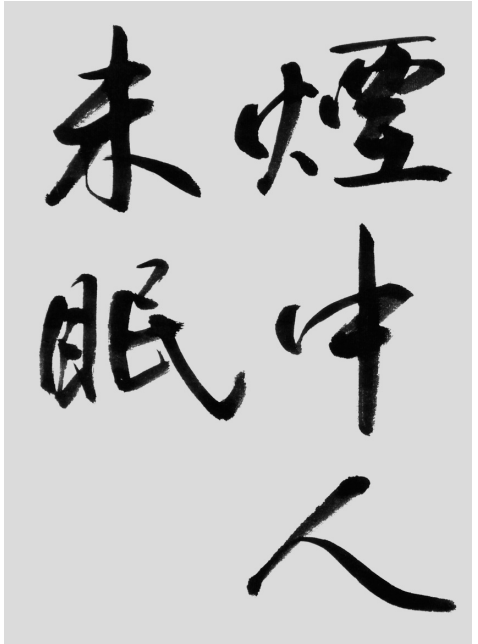 煙中人
未眠